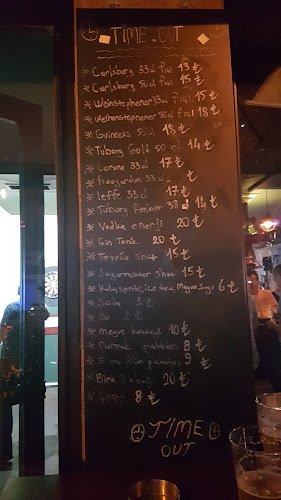 TIME OUT
* Carlsberg 33cl fıçı 13 ₺
* Carlsberg 50cl fıçı 15 ₺
* Weihenstephener 33cl fıçı 15 ₺
* Weihenstephener 50cl fıçı 18 ₺
* Guinness 50cl 18 ₺
* Tuborg Gold 50 cl 14 ₺
* Corona 33cl 17 ₺
* hoegarden 33cl
* leffe 33cl 17 ₺
* Tuborg 33cl 14 ₺
* Vodka enerji 20 ₺
* Gin Tonik 20 ₺
* Tequila Shot 15 ₺
* Jagermeister Shot 15 ₺
* Kola, sprite, ice tea, Meyve Suyu 6 ₺
* Soda 3 ₺
* Su 2 ₺
* meyve kokteyli 10 ₺
* Parmak patates 8 ₺
* Elma dilim patates 9
* Bira Tabağı 20 ₺
* 8 ₺
TIME
OUT